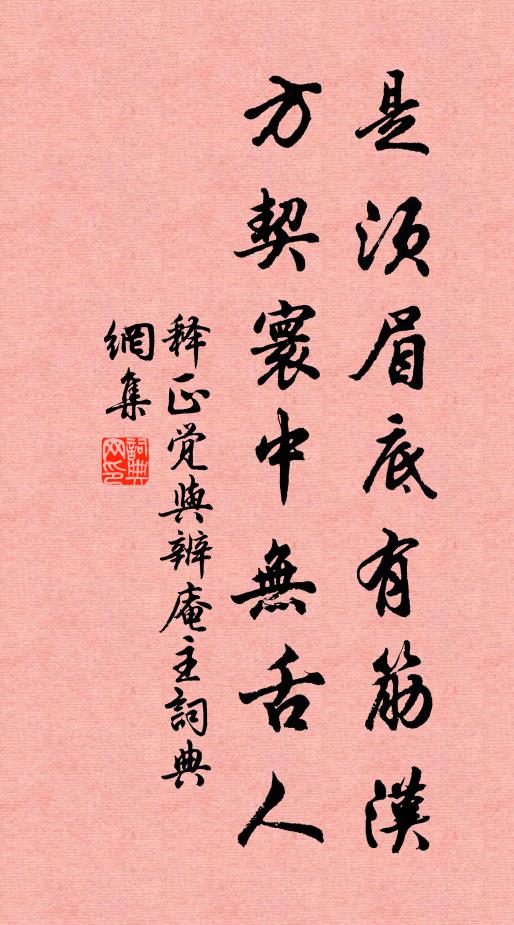 是須眉底有筋漢
方契寰中無舌人
释正觉與辨庵主詞典
網集
詞典
网印